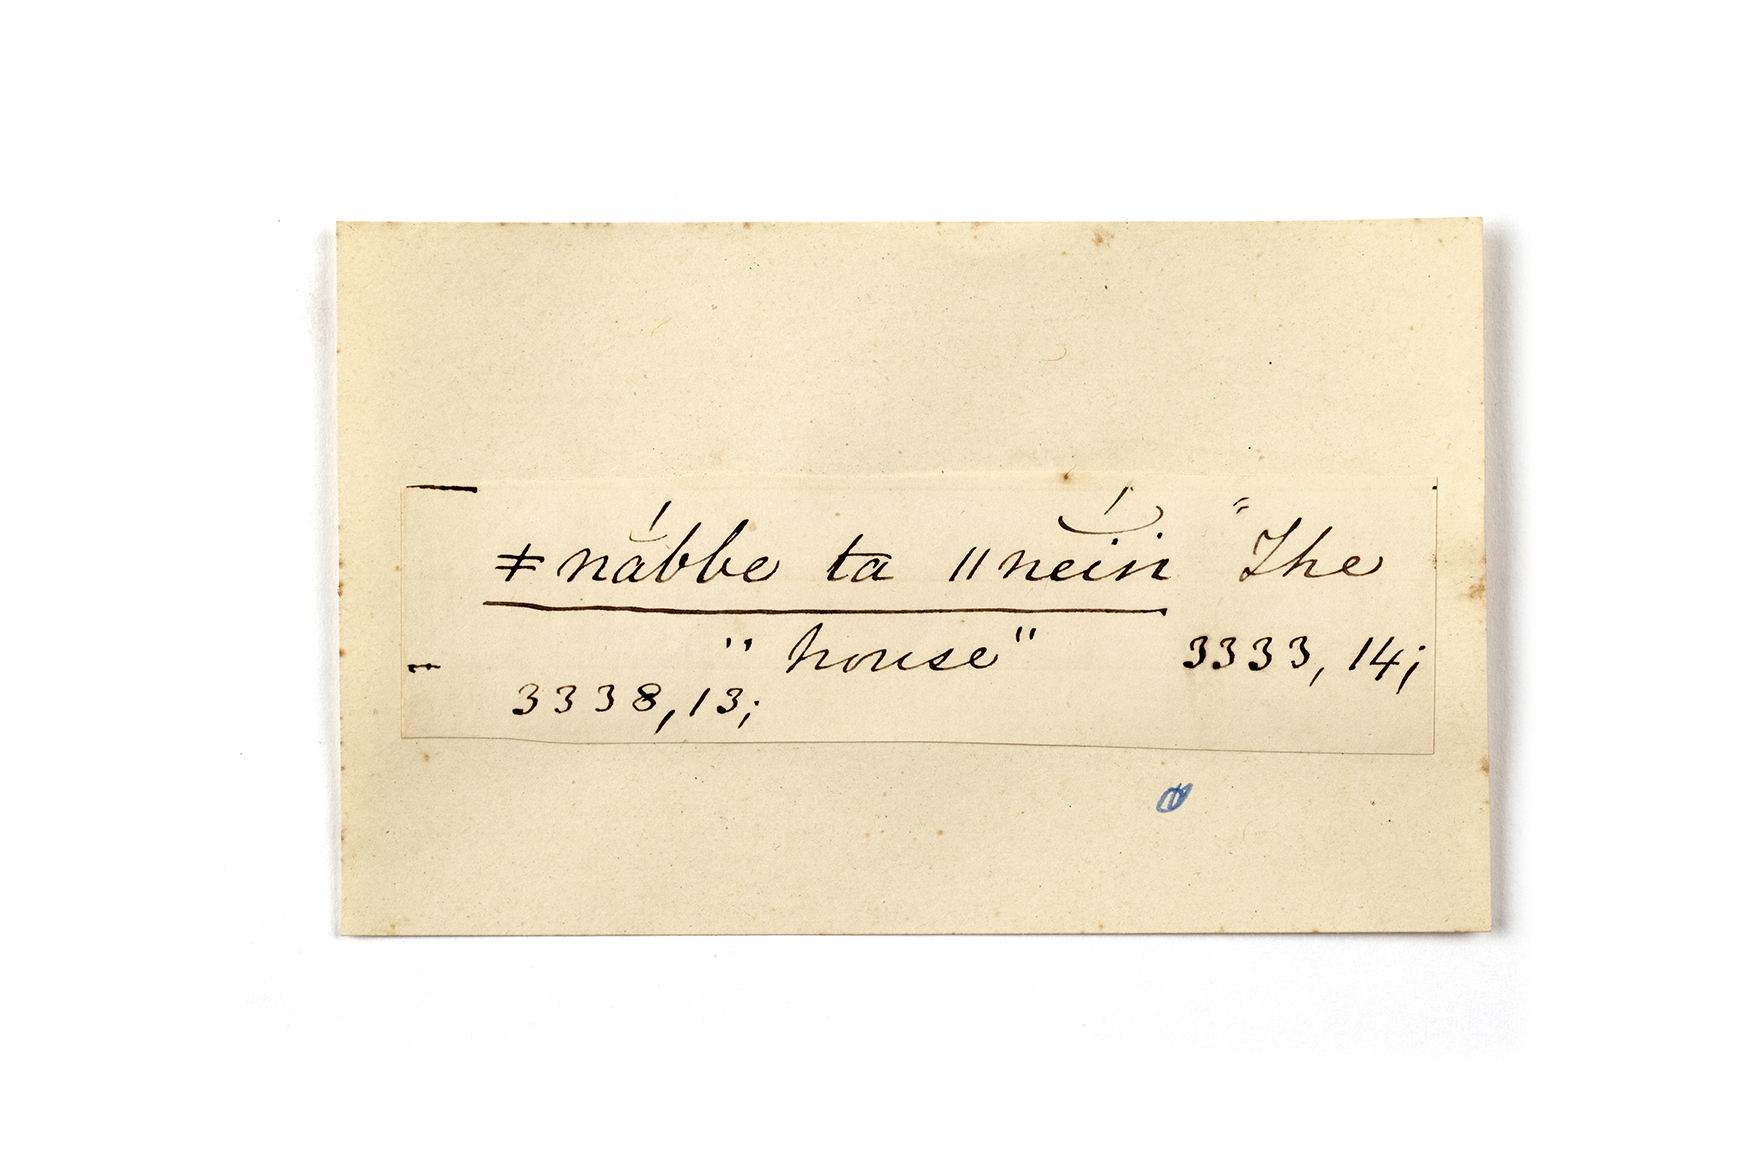 ǂnắbbe ta ǁnĕ́in̆ "The
" house" 3333, 14;
3338, 13;